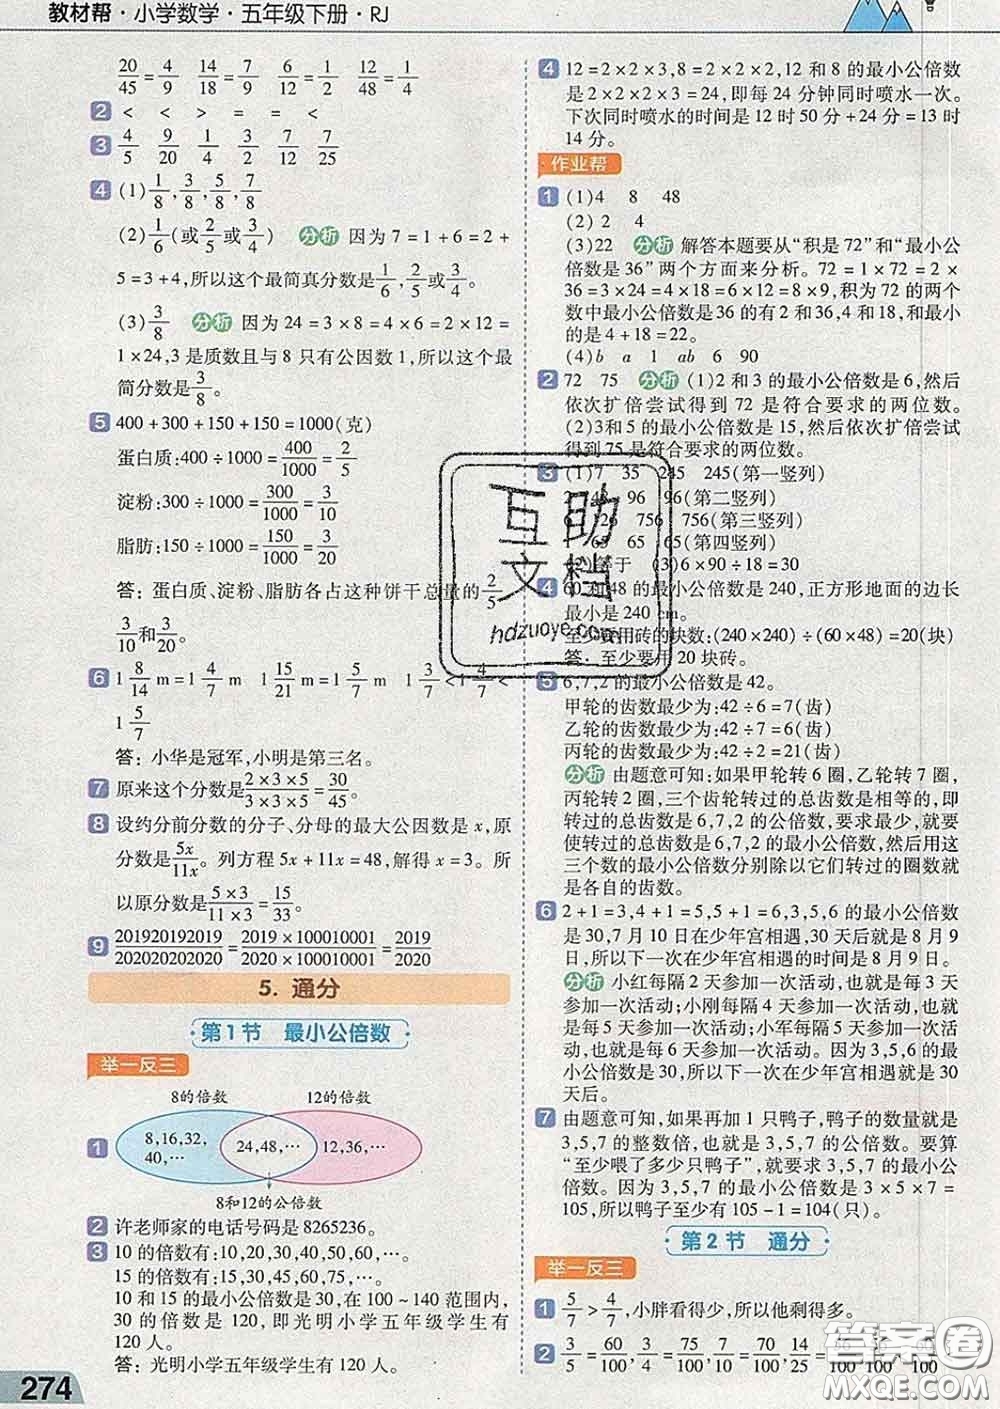 教材帮·小学数学·五年级下册·RJ
20/45=4/9 14/18=7/9 6/12=1/2 12/48=1/4
2 < < > = = <
3 4/5 9/20 1/4 3/2 7/12 7/25
4 (1)1/8,3/8,5/8,7/8
(2)1/6(或2/5或3/4) 分析 因为7=1+6=2+
5=3+4,所以这个最简真分数是1/6,2/5或3/4。
(3)3/8 分析 因为24=3×8=4×6=2×12=
1×24,3是质数且与8只有公因数1,所以这个最
简分数是3/8。
5 400+300+150+150=1000(克)
蛋白质:400÷1000=400/1000=2/5
淀粉:300÷1000=300/1000=3/10
脂肪:150÷1000=150/1000=3/20
答: 蛋白质、淀粉、脂肪各占这种饼干总量的2/5、
3/10和3/20。
6 1 8/14 m=1 4/7 m 1 15/21 m=1 5/7 m 1 3/7<1 4/7<
1 5/7
答: 小华是冠军,小明是第三名。
7 原来这个分数是2×3×5/3×3×5=30/45。
8 设约分前分数的分子、分母的最大公因数是x,原
分数是5x/11x。列方程5x+11x=48,解得x=3。所
以原分数是5×3/11×3=15/33。
9 201920192019/202020202020=2019×100010001/2020×100010001=2019/2020
5. 通分
第1节 最小公倍数
举一反三
8的倍数 12的倍数
1 8,16,32,
40,… 24,48,… 12,36,…
8和12的公倍数
2 许老师家的电话号码是8265236。
3 10的倍数有:10,20,30,40,50,60,…。
15的倍数有:15,30,45,60,…。
10和15的最小公倍数是30,在100~140范围内,
30的倍数是120,即光明小学五年级学生有
120人。
答: 光明小学五年级学生有120人。
274
4 12=2×2×3,8=2×2×2,12和8的最小公倍数
是2×2×2×3=24,即每24分钟同时喷水一次。
下次同时喷水的时间是12时50分+24分=13时
14分。
作业帮
1 (1)4 8 48
(2)2 4
(3)22 分析 解答本题要从“积是72”和“最小公
倍数是36”两个方面来分析。72=1×72=2×
36=3×24=4×18=6×12=8×9,积为72的两个
数中最小公倍数是36的有2和36,4和18,和最小
的是4+18=22。
(4)b a 1 ab 6 90
2 72 75 分析 (1)2和3的最小公倍数是6,然后
依次扩倍尝试得到72是符合要求的两位数。
(2)3和5的最小公倍数是15,然后依次扩倍尝试
得到75是符合要求的两位数。
3 (1)7 35 245 245(第一竖列)
96 96(第二竖列)
26 756 756(第三竖列)
65 65(第四竖列)
(2)等于 (3)6×90÷18=30
4 60和48的最小公倍数是240,正方形地面的边长
最小是240 cm。
至少要用砖的块数:(240×240)÷(60×48)=20(块)
答: 至少要用20块砖。
5 6,7,2的最小公倍数是42。
甲轮的齿数最少为:42÷6=7(齿)
乙轮的齿数最少为:42÷7=6(齿)
丙轮的齿数最少为:42÷2=21(齿)
分析 由题意可知:如果甲轮转6圈,乙轮转7圈,
丙轮转2圈,三个齿轮转过的总齿数是相等的,即
转过的总齿数是6,7,2的公倍数,要求最少,就要
使转过的总齿数是6,7,2的最小公倍数,然后用这
三个数的最小公倍数分别除以它们转过的圈数就
是各自的齿数。
6 2+1=3,4+1=5,5+1=6,3,5,6的最小公倍数
是30,7月10日在少年宫相遇,30天后就是8月9
日,所以下一次在少年宫相遇的时间是8月9日。
分析 小红每隔2天参加一次活动,也就是每3天
参加一次活动;小刚每隔4天参加一次活动,也就
是每5天参加一次活动;小军每隔5天参加一次活
动,也就是每6天参加一次活动。因为3,5,6的最
小公倍数是30,所以下一次在少年宫相遇就是30
天后。
7 由题意可知,如果再加1只鸭子,鸭子的数量就是
3,5,7的整数倍,也就是3,5,7的公倍数。要算
“至少喂了多少只鸭子”,就要求3,5,7的最小公
倍数。因为3,5,7的最小公倍数是3×5×7=
105,所以鸭子至少有105-1=104(只)。
第2节 通分
举一反三
1 5/7>4/7,小胖看得少,所以他剩得多。
2 3/5=60/100,3/4=75/100,7/10=70/100,14/25=
互助
文档
hdzuoye.com
答案圈
MXQE.COM